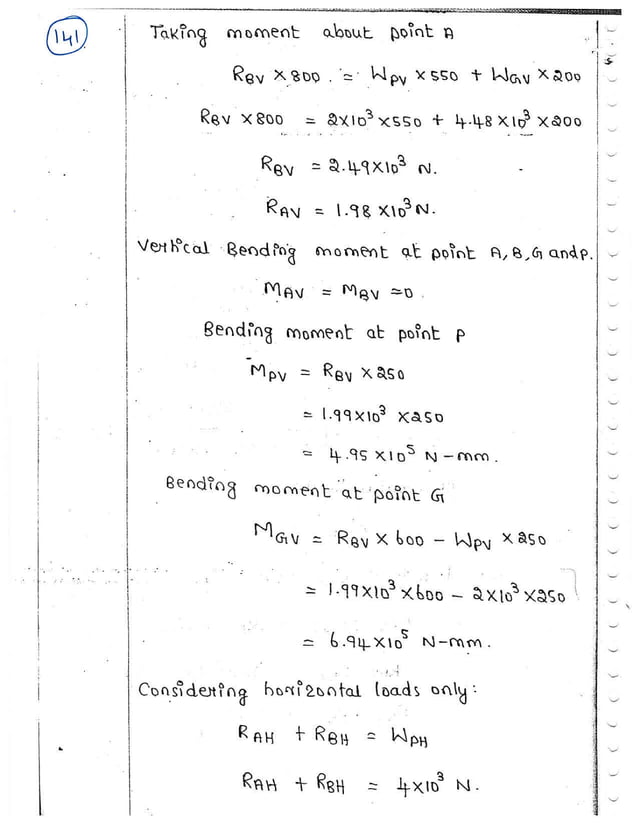 141
Taking moment about point A
R_BV × 800 = W_PV × 550 + W_GV × 200
R_BV × 800 = 2×10³ × 550 + 4.48 × 10³ × 200
R_BV = 2.49×10³ N.
R_AV = 1.98 ×10³ N.
Vertical Bending moment at point A, B, G and P.
M_AV = M_BV = 0.
Bending moment at point P
M_PV = R_BV × 250
= 1.99×10³ × 250
= 4.95 ×10⁵ N-mm.
Bending moment at point G
M_GV = R_BV × 600 - W_PV × 250
= 1.99×10³ × 600 - 2×10³ × 250
= 6.94 ×10⁵ N-mm.
Considering horizontal loads only:
R_AH + R_BH = W_PH
R_AH + R_BH = 4×10³ N.